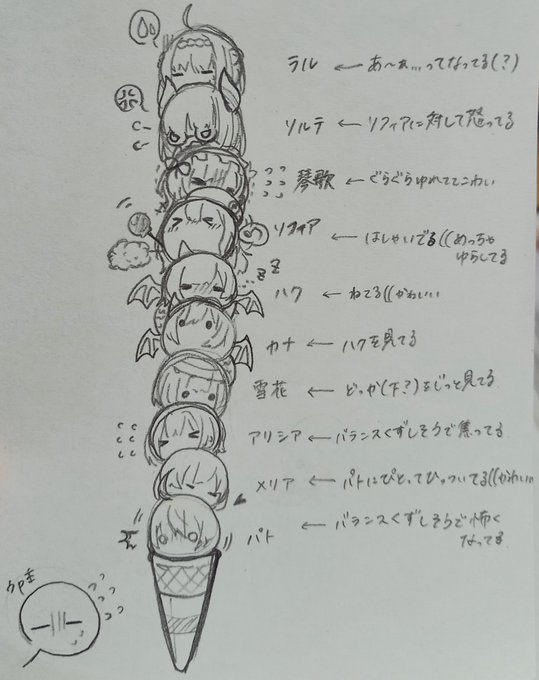 ラル ← あ〜ぁ...ってなってる(?)
ソルテ ← リフィアに対して怒ってる
琴歌 ← ぐらぐらゆれててこわい
リフィア ← はしゃいでる((めっちゃ
ゆらしてる
zz
ハク ← ねてる((かわいい
カナ ← ハクを見てる
雪花 ← どっか(下?)をじっと見てる
アリシア ← バランスくずしそうで焦ってる
メリア ← パトにぴとってひっついてる((かわいい
パト ← バランスくずしそうで怖く
なってる